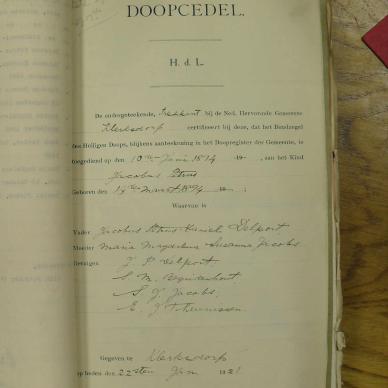 DOOPCEDEL.
H. d. L.
De ondergeteekende, bij de Ned. Hervormde Gemeente
Klerksdorp certificeert bij deze, dat het Bondzegel
des Heiligen Doops, blijkens aanteekening in het Doopregister der Gemeente, is
toegediend op den 10de Juni 1894 , aan het Kind
Jacobus Petrus
Geboren den 14den Maart 1894
Waarvan is
Vader Jacobus Petrus Delport
Moeder Maria Magdalena Susanna Jacobs
Getuigen J. P. Delport
S. M. Bezuidenhout
S. J. Jacobs.
E. J. Theunissen.
Gegeven te Klerksdorp
op heden den 22sten 1921